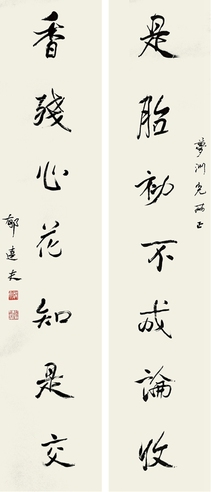 夢洲兄雨正
是胎初不成論收
香殘心花知是交
郁達夫